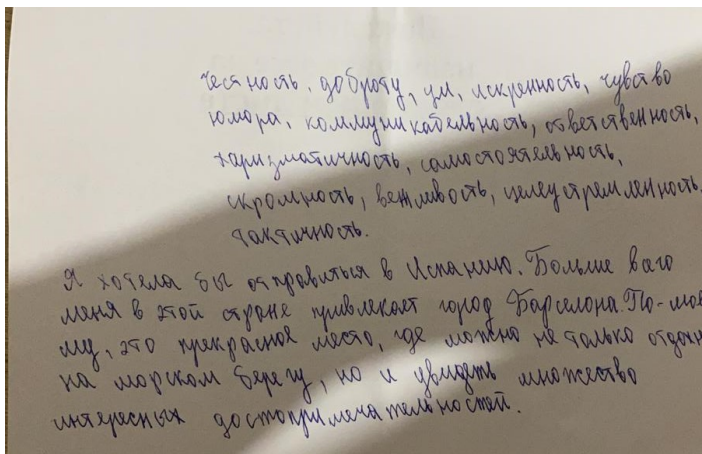 честность, доброту, ум, искренность, чувство
юмора, коммуникабельность, ответственность,
харизматичность, самостоятельность,
скромность, вежливость, целеустремленность,
тактичность.
Я хотела бы отправиться в Испанию. Больше всего
меня в этой стране привлекает город Барселона. По-мое
му, это прекрасное место, где можно не только отдохн
на морском берегу, но и увидеть множество
интересных достопримечательностей.